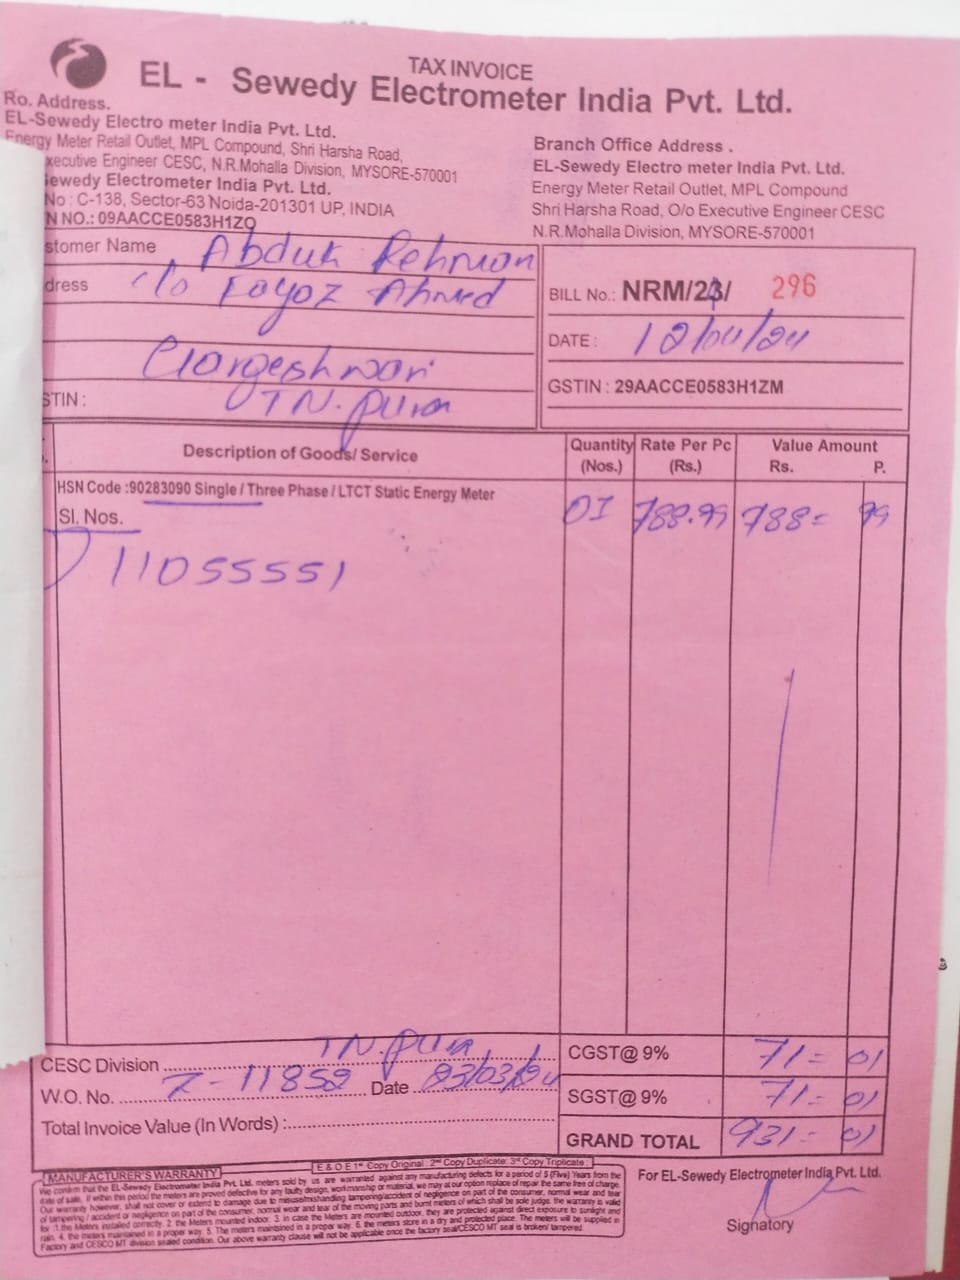 TAX INVOICE
EL - Sewedy Electrometer India Pvt. Ltd.
Ro. Address.
EL-Sewedy Electro meter India Pvt. Ltd.
Energy Meter Retail Outlet, MPL Compound, Shri Harsha Road,
xecutive Engineer CESC, N.R.Mohalla Division, MYSORE-570001
ewedy Electrometer India Pvt. Ltd.
No : C-138, Sector-63 Noida-201301 UP, INDIA
N NO.: 09AACCE0583H1ZO
Branch Office Address .
EL-Sewedy Electro meter India Pvt. Ltd.
Energy Meter Retail Outlet, MPL Compound
Shri Harsha Road, O/o Executive Engineer CESC
N.R.Mohalla Division, MYSORE-570001
stomer Name Abduk Rehman
dress c/o Fayoz Ahmed
Gargeshwari
STIN : TN.pura
BILL No.: NRM/24/ 296
DATE : 12/04/24
GSTIN : 29AACCE0583H1ZM
Description of Goods/ Service Quantity (Nos.) Rate Per Pc (Rs.) Value Amount Rs. P.
HSN Code :90283090 Single / Three Phase / LTCT Static Energy Meter
Sl. Nos. 01 788.99 788= 99
11055551
CESC Division TN.pura
W.O. No. 7-11852 Date 23/03/24
Total Invoice Value (In Words) :
CGST@ 9% 71= 01
SGST@ 9% 71= 01
GRAND TOTAL 931= 01
E & O E 1st Copy Original : 2nd Copy Duplicate: 3rd Copy Triplicate
MANUFACTURER'S WARRANTY
We confirm that the EL-Sewedy Electrometer India Pvt. Ltd. meters sold by us are warranted against any manufacturing defects for a period of 5 (Five) Years from the
date of sale. If within this period the meters are proved defective for any faulty design, workmanship or material, we may at our option replace of repair the same free of charge.
Our warranty however, shall not cover or extend to damage due to misuse/mishandling tampering/accident of negligence on part of the consumer, normal wear and tear
of tampering / accident or negligence on part of the consumer, normal wear and tear of the moving parts and burnt meters of which shall be sole judge. The warranty is valid
for 1. the Meters installed correctly. 2. the Meters mounted indoor. 3. in case the Meters are mounted outdoor, they are protected against direct exposure to sunlight and
rain. 4. the meters maintained in a proper way. 5. The meters maintained in a proper way. 6. the meters store in a dry and protected place. The meters will be supplied in
Factory and CESCO MT division sealed condition. Our above warranty clause will not be applicable once the factory seal/CESCO MT seal is broken/ tampered.
For EL-Sewedy Electrometer India Pvt. Ltd.
Signatory